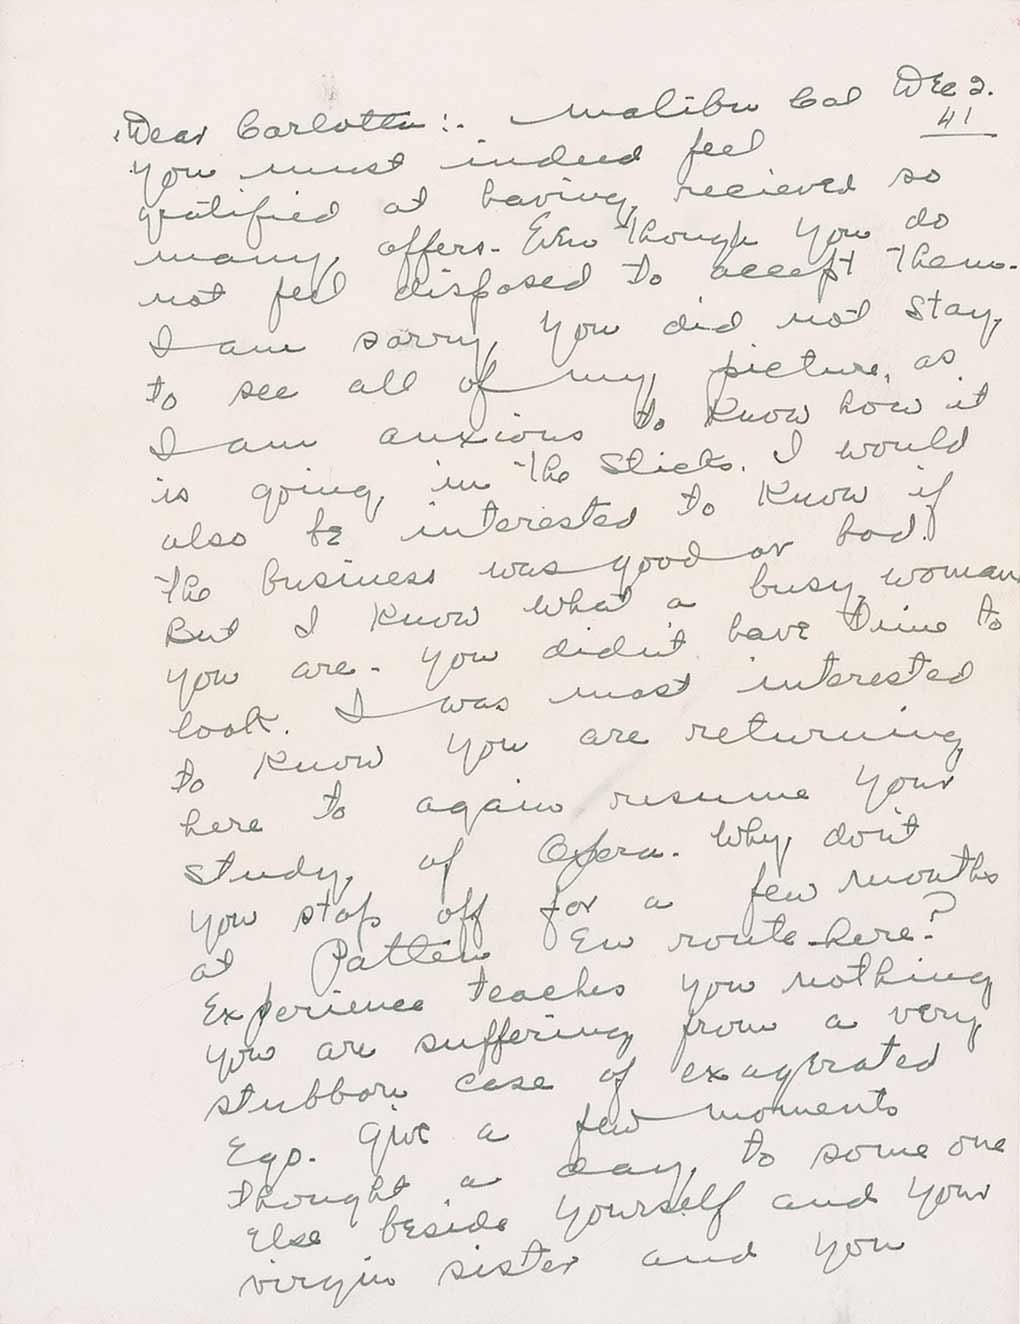 Dear Carlotta:. Malibu Cal Dec 2.
41
You must indeed feel
gratified at having recieved so
many offers. Even though you do
not feel disposed to accept them.
I am sorry you did not stay
to see all of my picture, as
I am anxious to know how it
is going, in the sticks. I would
also be interested to know if
the business was good or bad.
But I know what a busy woman
you are. You didn't have time to
look. I was most interested
to know you are returning
here to again resume your
study, of Opera. Why don't
you stop off for a few months
at Patten En route here?
Experience teaches you nothing
you are suffering from a very
stubborn case of exagerated
Ego. Give a few moments
thought a day, to some one
Else beside yourself and your
virgin sister and you